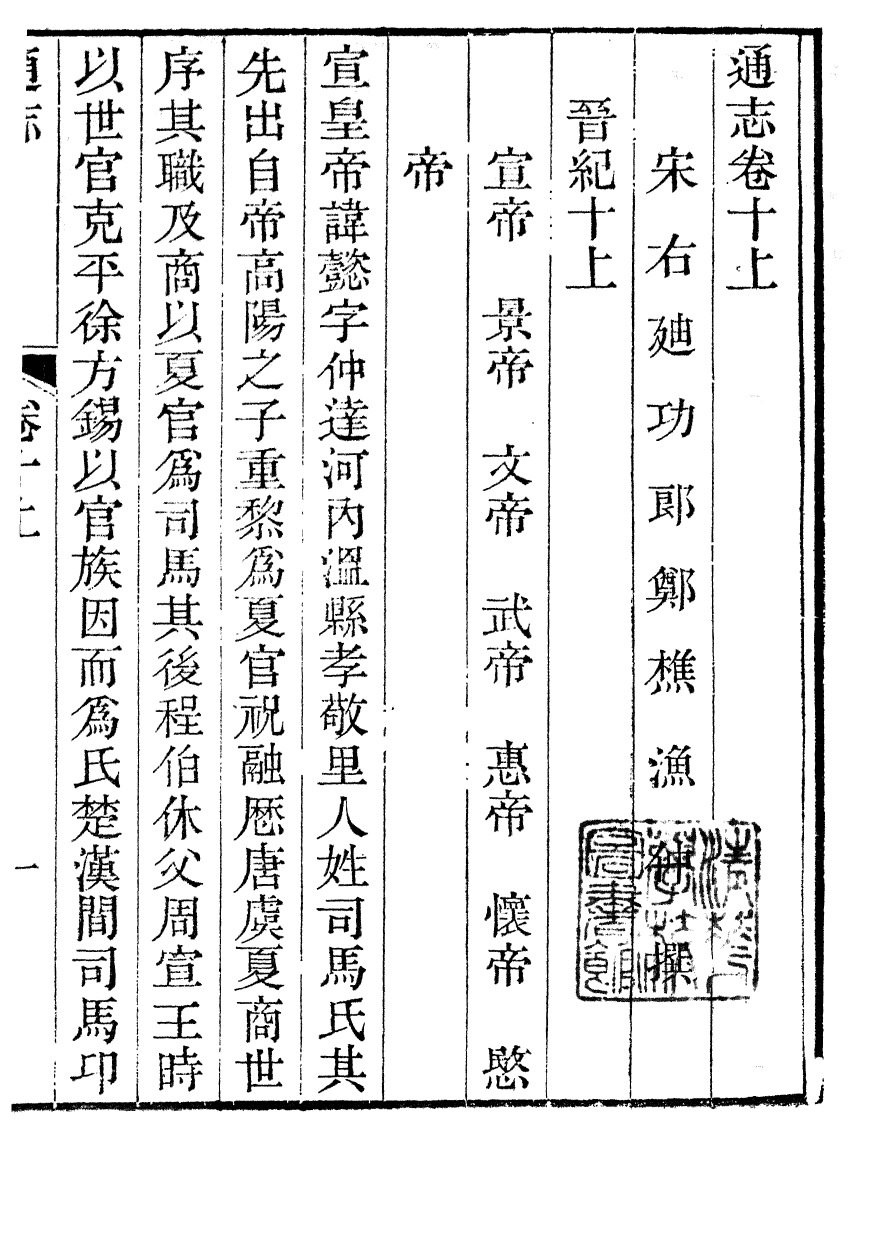 通志卷十上
宋右廸功郎鄭樵漁仲撰
晉紀十上
宣帝 景帝 文帝 武帝 惠帝 懷帝 愍
帝
宣皇帝諱懿字仲達河內溫縣孝敬里人姓司馬氏其
先出自帝高陽之子重黎爲夏官祝融歷唐虞夏商世
序其職及商以夏官爲司馬其後程伯休父周宣王時
以世官克平徐方錫以官族因而爲氏楚漢間司馬卬
通志 卷十上 一
清華大學圖書館